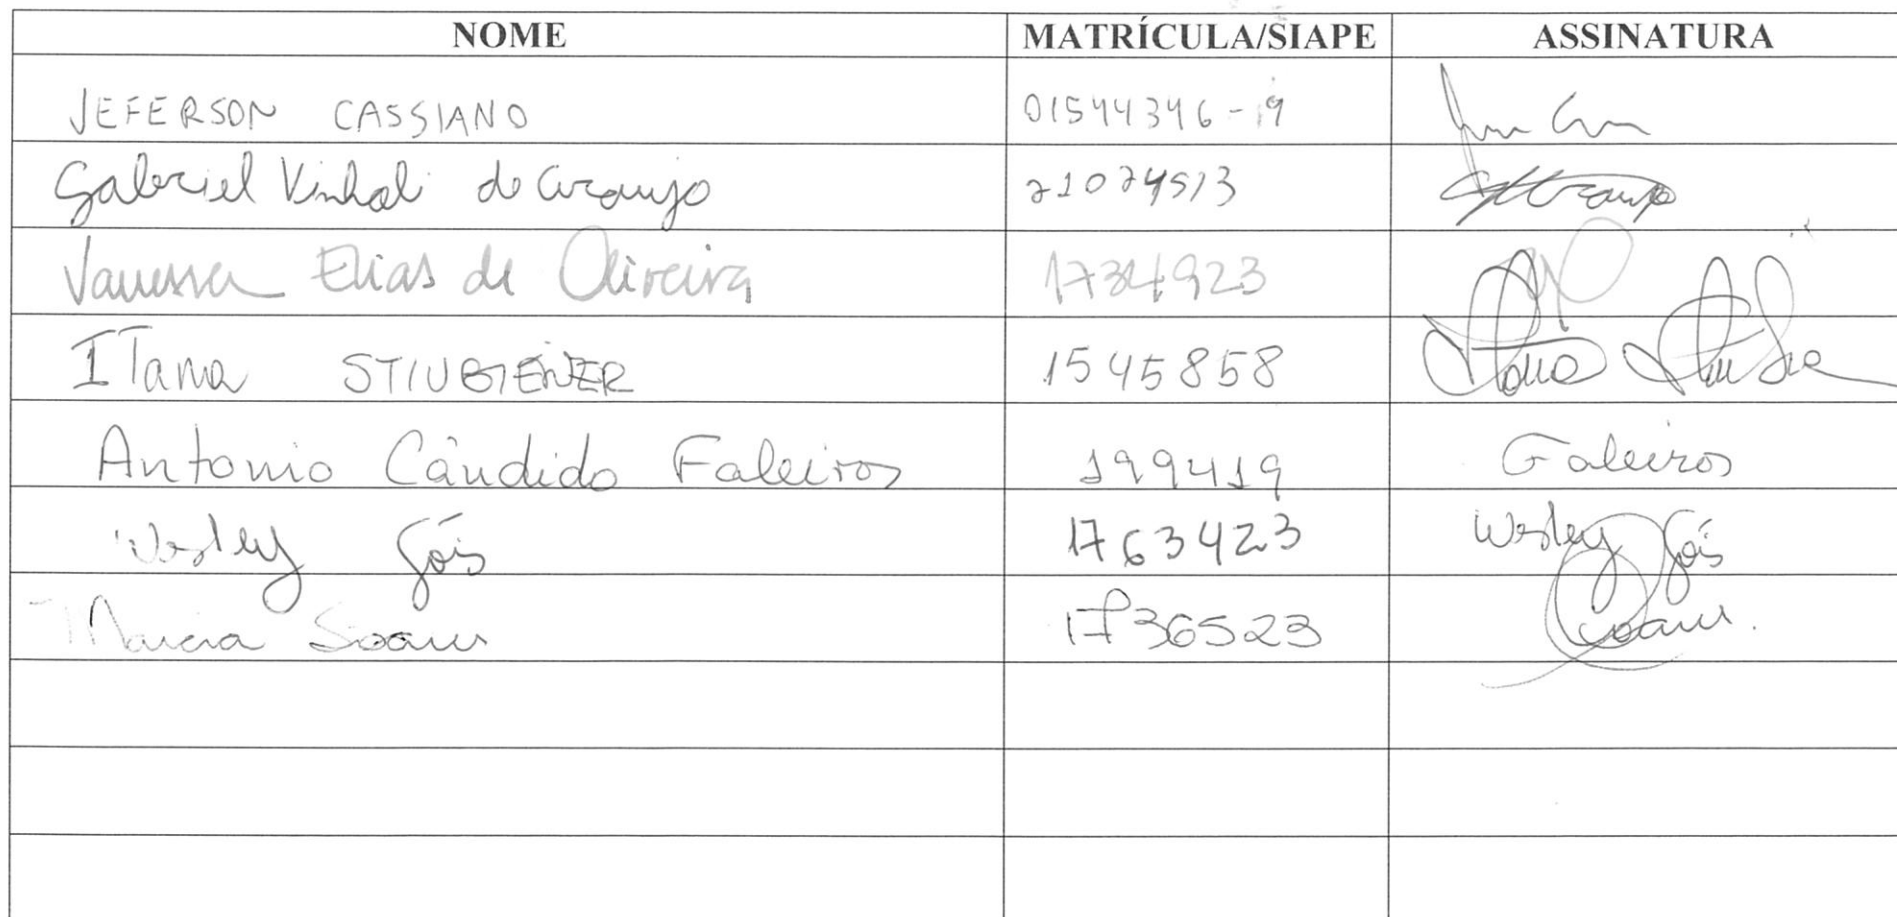 NOME MATRÍCULA/SIAPE ASSINATURA
JEFERSON CASSIANO 01544346-19
Gabriel Vinhal de Araujo 21074513
Vanessa Elias de Oliveira 1734923
ITana STIUBIENER 1545858
Antonio Cândido Faleiros 199419 Faleiros
Wesley Góis 1763423 Wesley Góis
Marcia Soares 1736523 Soares.